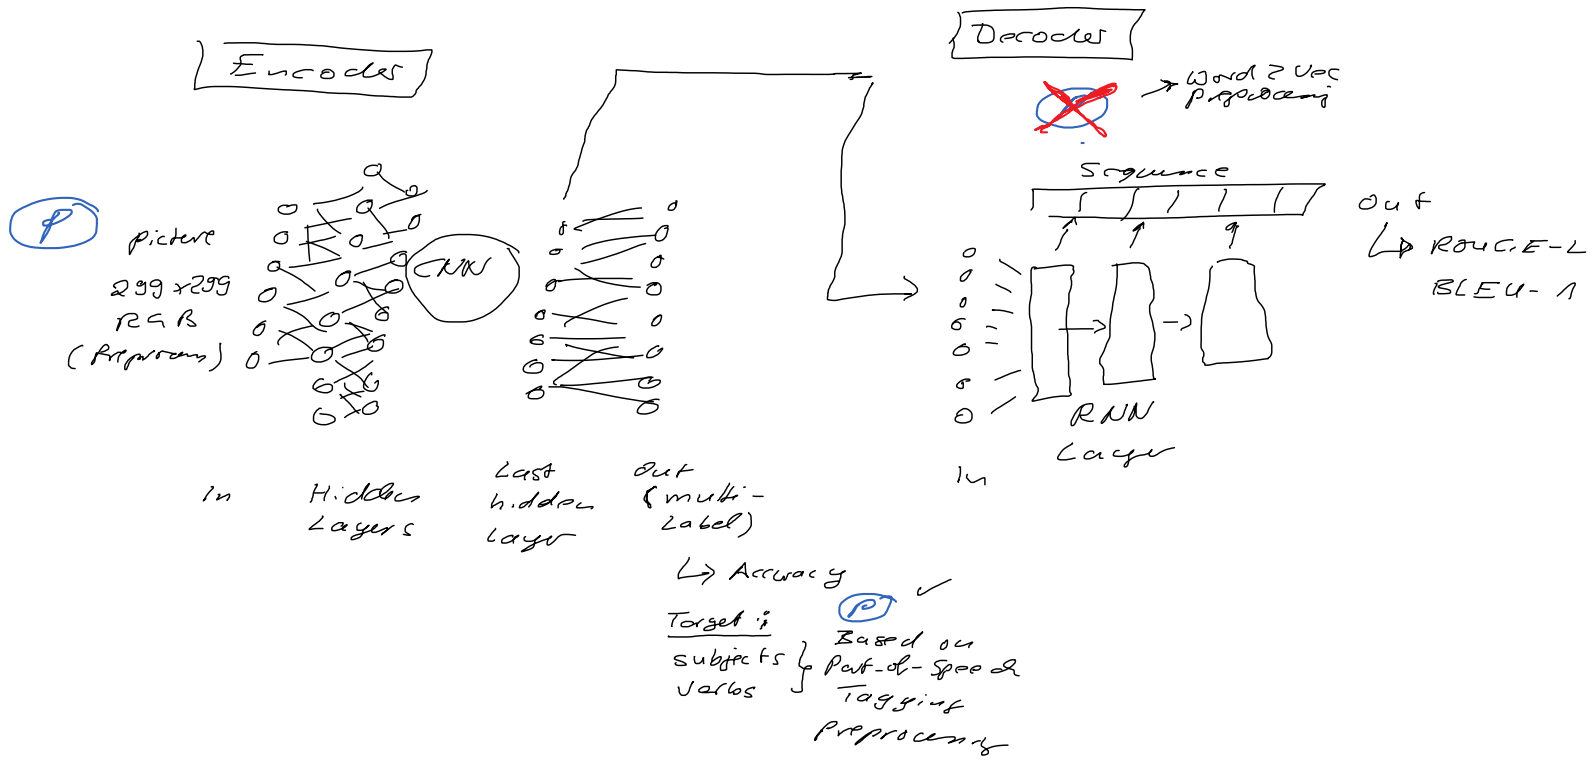 Encoder
Decoder
Word 2 Vec
preprocessing
Sequence
P
picture
299x299
RGB
(Preprocess)
CNN
Out
ROUGE-L
BLEU-1
RNN
Layer
In
In
Hidden
Layers
Last
hidden
Layer
Out
(multi-
Label)
Accuracy
P
Target:
subjects
verbs
Based on
Part-of-Speech
Tagging
Preprocessing